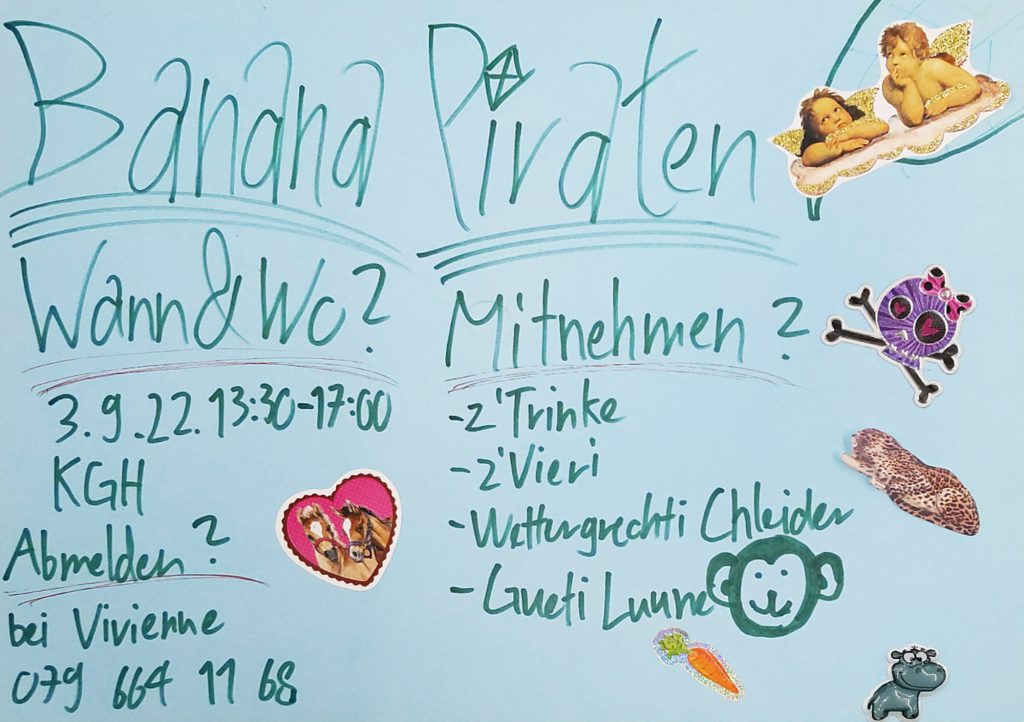 Banana Piraten
Wann & Wo?
3.9.22. 13:30-17:00
KGH
Abmelden?
bei Vivienne
079 664 11 68
Mitnehmen?
- z'Trinke
- z'Vieri
- Wettergrechti Chleider
- Gueti Luune